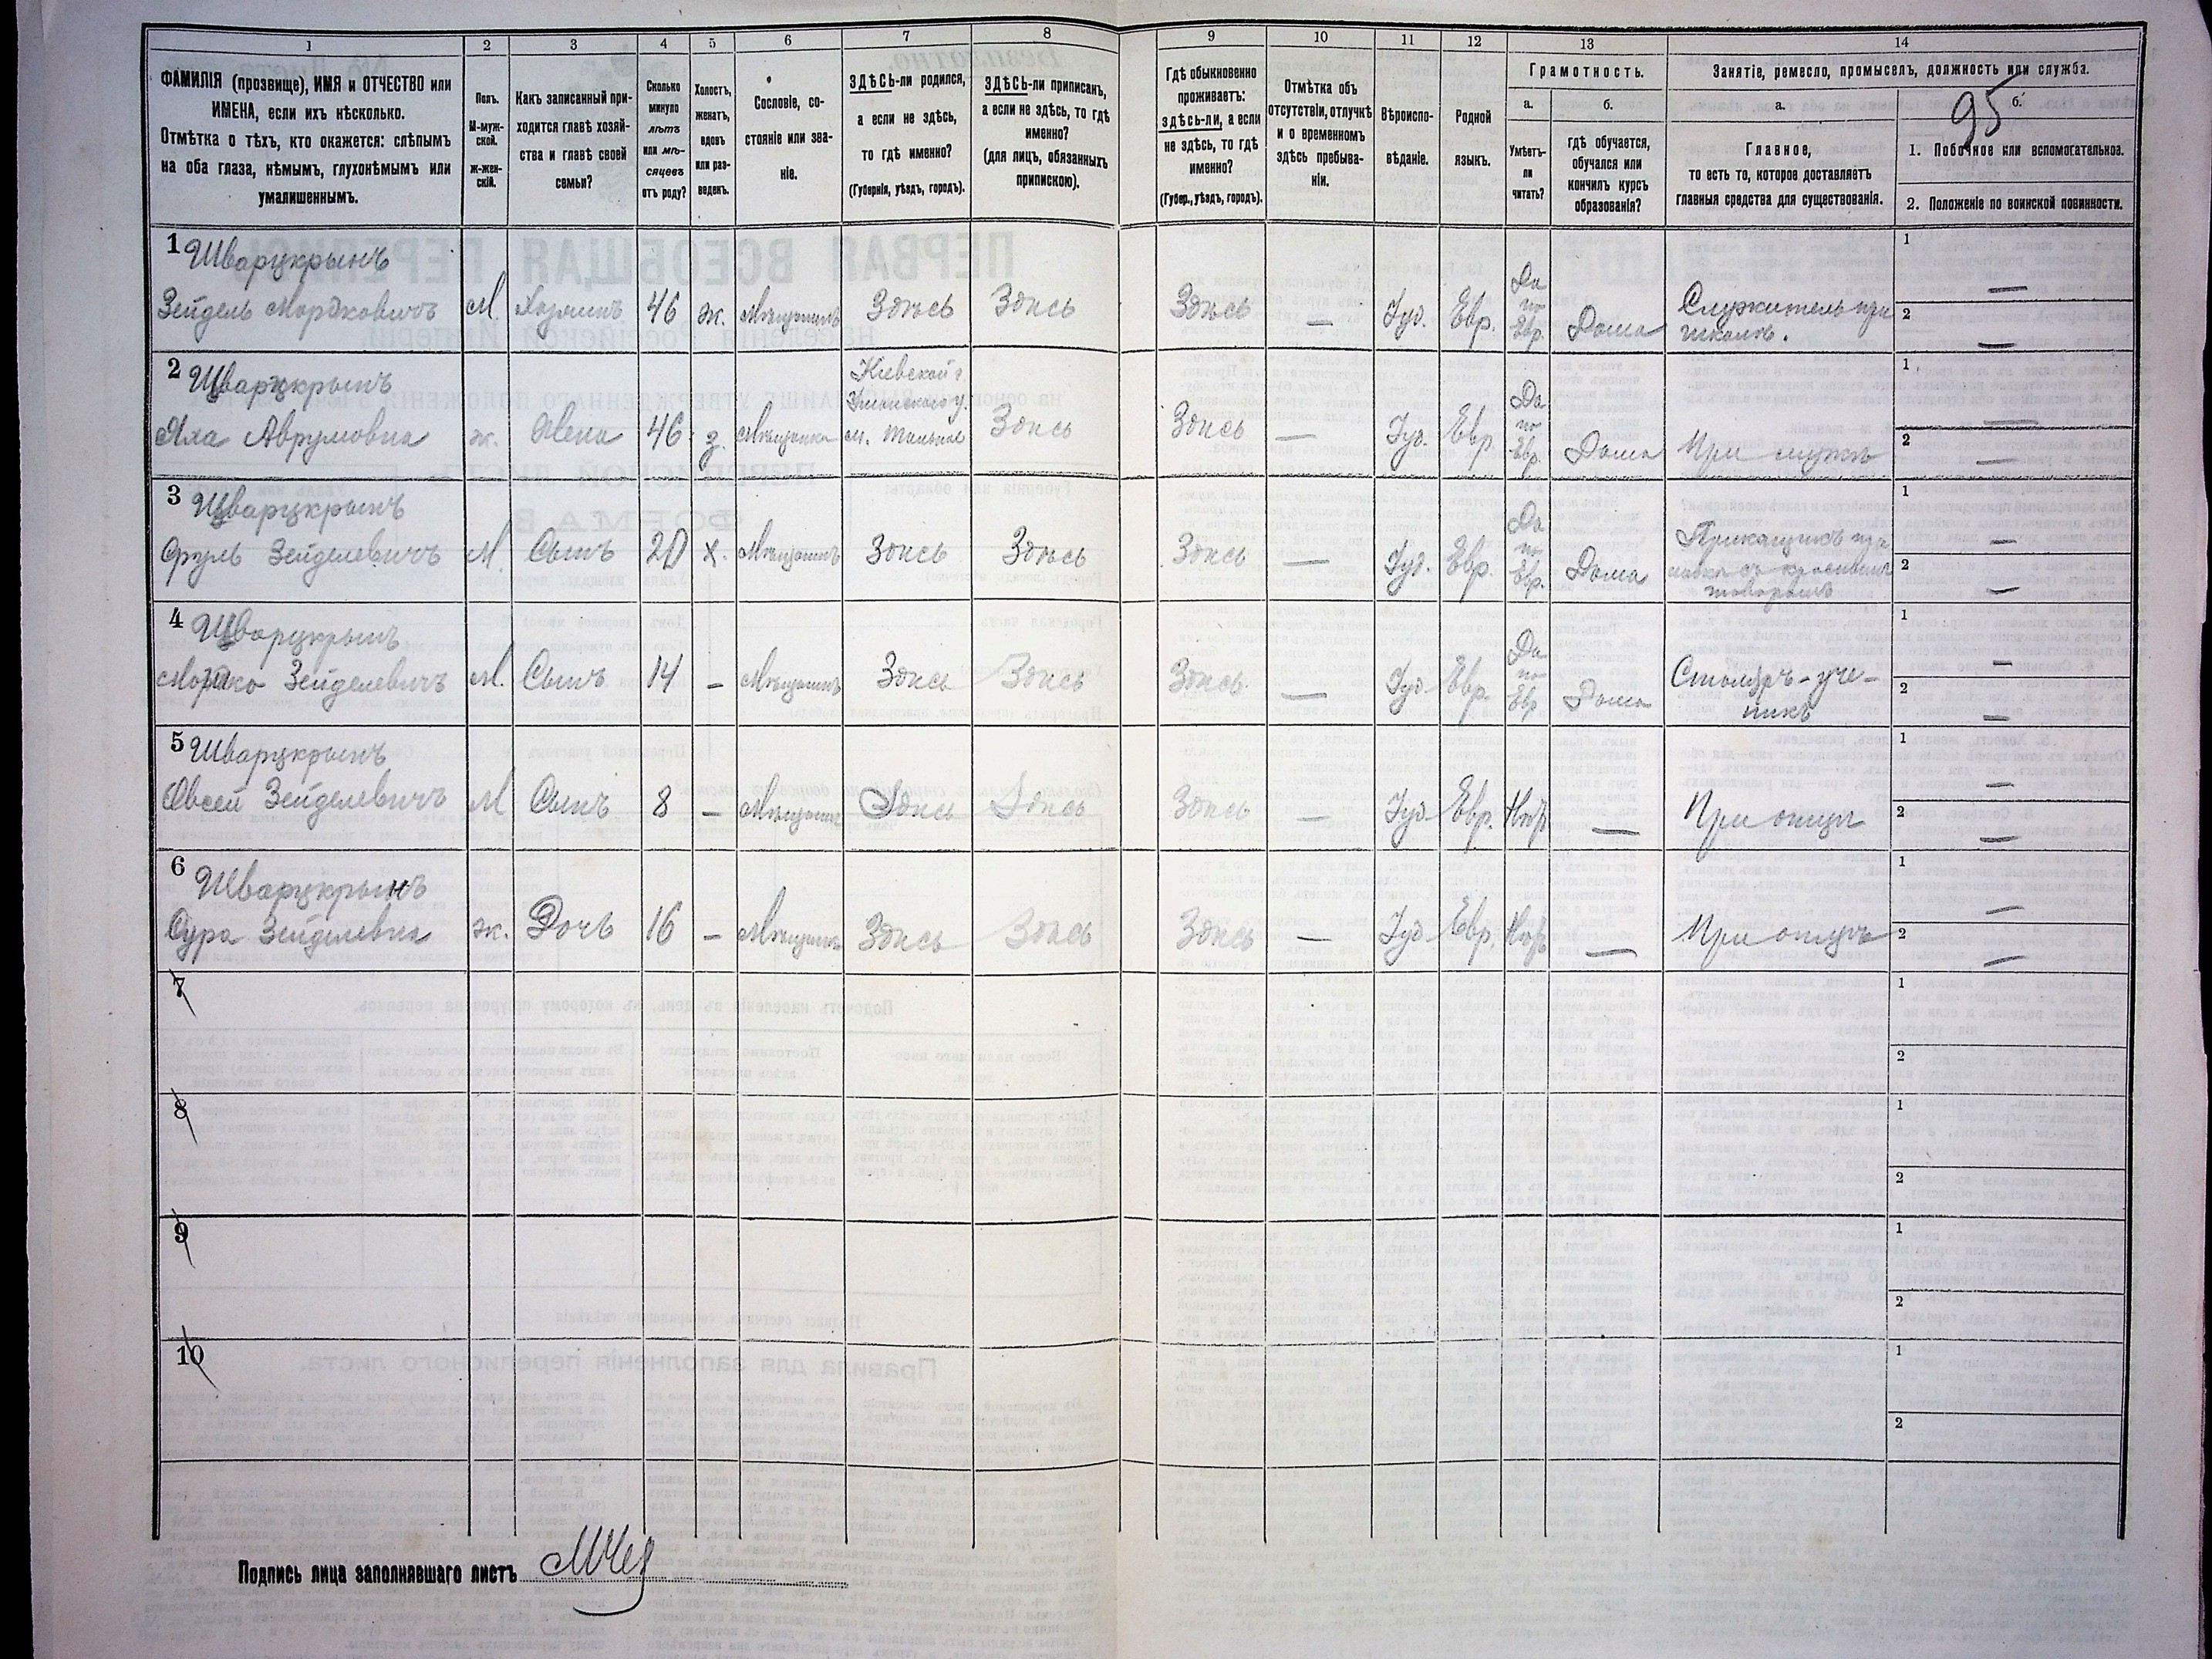 1
2
3
4
5
6
7
8
9
10
11
12
13
14
ФАМИЛІЯ (прозвище), ИМЯ и ОТЧЕСТВО или
ИМЕНА, если ихъ нѣсколько.
Отмѣтка о тѣхъ, кто окажется: слѣпымъ
на оба глаза, нѣмымъ, глухонѣмымъ или
умалишеннымъ.
Полъ.
М-муж-
ской.
ж-жен-
скій.
Какъ записанный при-
ходится главѣ хозяй-
ства и главѣ своей
семьи?
Сколько
минуло
лѣтъ
или мѣ-
сяцевъ
отъ роду?
Холостъ,
женатъ,
вдовъ
или раз-
веденъ.
Сословіе, со-
стояніе или зва-
ніе.
ЗДѢСЬ-ли родился,
а если не здѣсь,
то гдѣ именно?
(Губернія, уѣздъ, городъ).
ЗДѢСЬ-ли приписанъ,
а если не здѣсь, то гдѣ
именно?
(для лицъ, обязанныхъ
припискою).
Гдѣ обыкновенно
проживаетъ:
здѣсь-ли, а если
не здѣсь, то гдѣ
именно?
(Губер., уѣздъ, городъ).
Отмѣтка объ
отсутствіи, отлучкѣ
и о временномъ
здѣсь пребыва-
ніи.
Вѣроиспо-
вѣданіе.
Родной
языкъ.
Грамотность.
а.
Умѣетъ-
ли
читать?
б.
гдѣ обучается,
обучался или
кончилъ курсъ
образованія?
Занятіе, ремесло, промыселъ, должность или служба.
а.
Главное,
то есть то, которое доставляетъ
главныя средства для существованія.
95
б.
1. Побочное или вспомогательное.
2. Положеніе по воинской повинности.
1 Шварцкрынъ
Зейдель Мордковичъ М. Хозяинъ 46 ж. Мѣщанинъ Здѣсь Здѣсь Здѣсь — Іуд. Евр. Да по Евр. Дома Служитель при
школѣ.
1 —
2 —
2 Шварцкрынъ
Хая Аврумовна ж. Жена 46 з. Мѣщанка
Кіевской г.
Уманскаго у.
м. Тальное
Здѣсь Здѣсь — Іуд. Евр. Да по Евр. Дома При мужѣ
1 —
2 —
3 Шварцкрынъ
Сруль Зейделевичъ М. Сынъ 20 х. Мѣщанинъ Здѣсь Здѣсь Здѣсь — Іуд. Евр. Да по Евр. Дома Прикащикъ при
лавкѣ съ краснымъ
товаромъ
1 —
2 —
4 Шварцкрынъ
Мортко Зейделевичъ М. Сынъ 14 — Мѣщанинъ Здѣсь Здѣсь Здѣсь — Іуд. Евр. Да по Евр. Дома Столяръ-уче-
никъ
1 —
2 —
5 Шварцкрынъ
Овсей Зейделевичъ М Сынъ 8 — Мѣщанинъ Здѣсь Здѣсь Здѣсь — Іуд. Евр. Нѣтъ — При отцѣ
1 —
2 —
6 Шварцкрынъ
Сура Зейделевна ж. Дочь 16 — Мѣщанка Здѣсь Здѣсь Здѣсь — Іуд. Евр. Нѣтъ — При отцѣ
1 —
2 —
7
1
2
8
1
2
9
1
2
10
1
2
Подпись лица заполнявшаго листъ